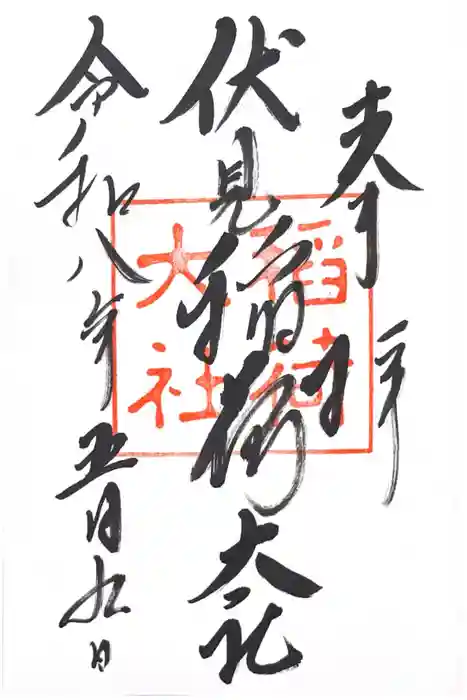 奉拝
伏見稲荷大社
令和八年五月九日
稲荷
大社